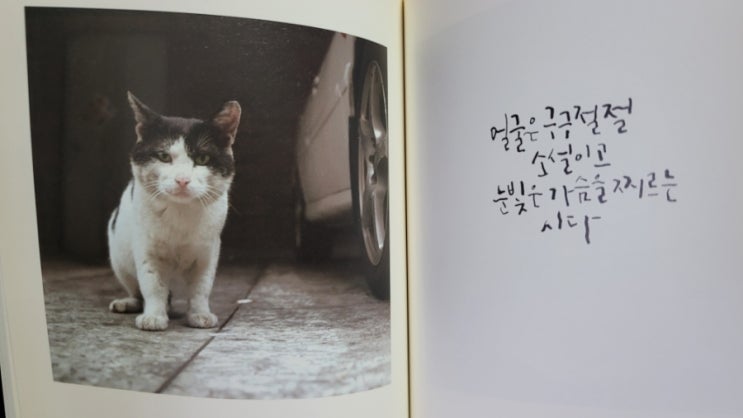 얼굴은 구구절절
소설이고
눈빛은 가슴을 찌르는
시다